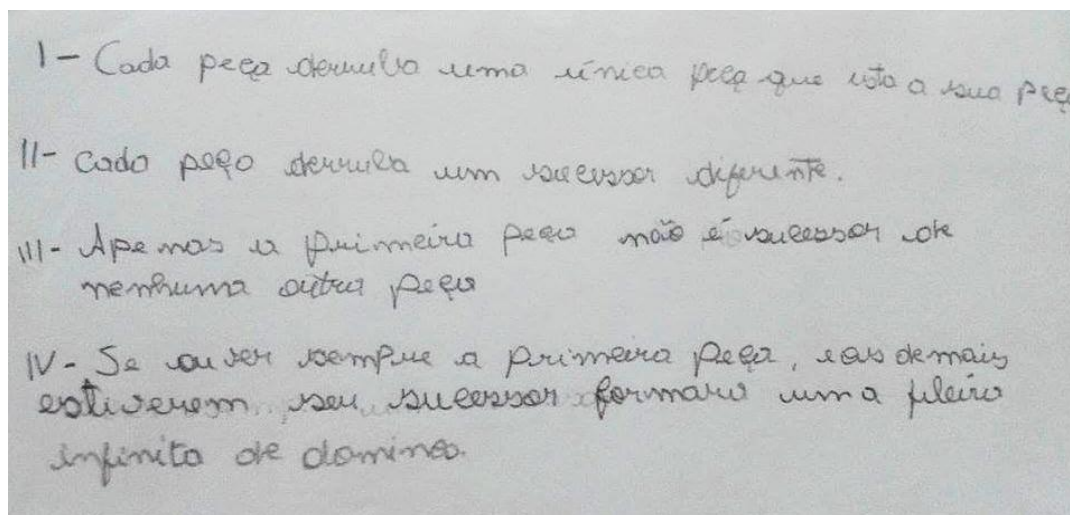 I - Cada peça derruba uma única peça que esta a sua peç
II- Cada peça derruba um sucessor diferente.
III- Apenas a primeira peça não é sucessor de
nenhuma outra peça
IV- Se ouver sempre a primeira peça, e as demais
estiverem seu sucessor formara uma fileira
infinita de domines.